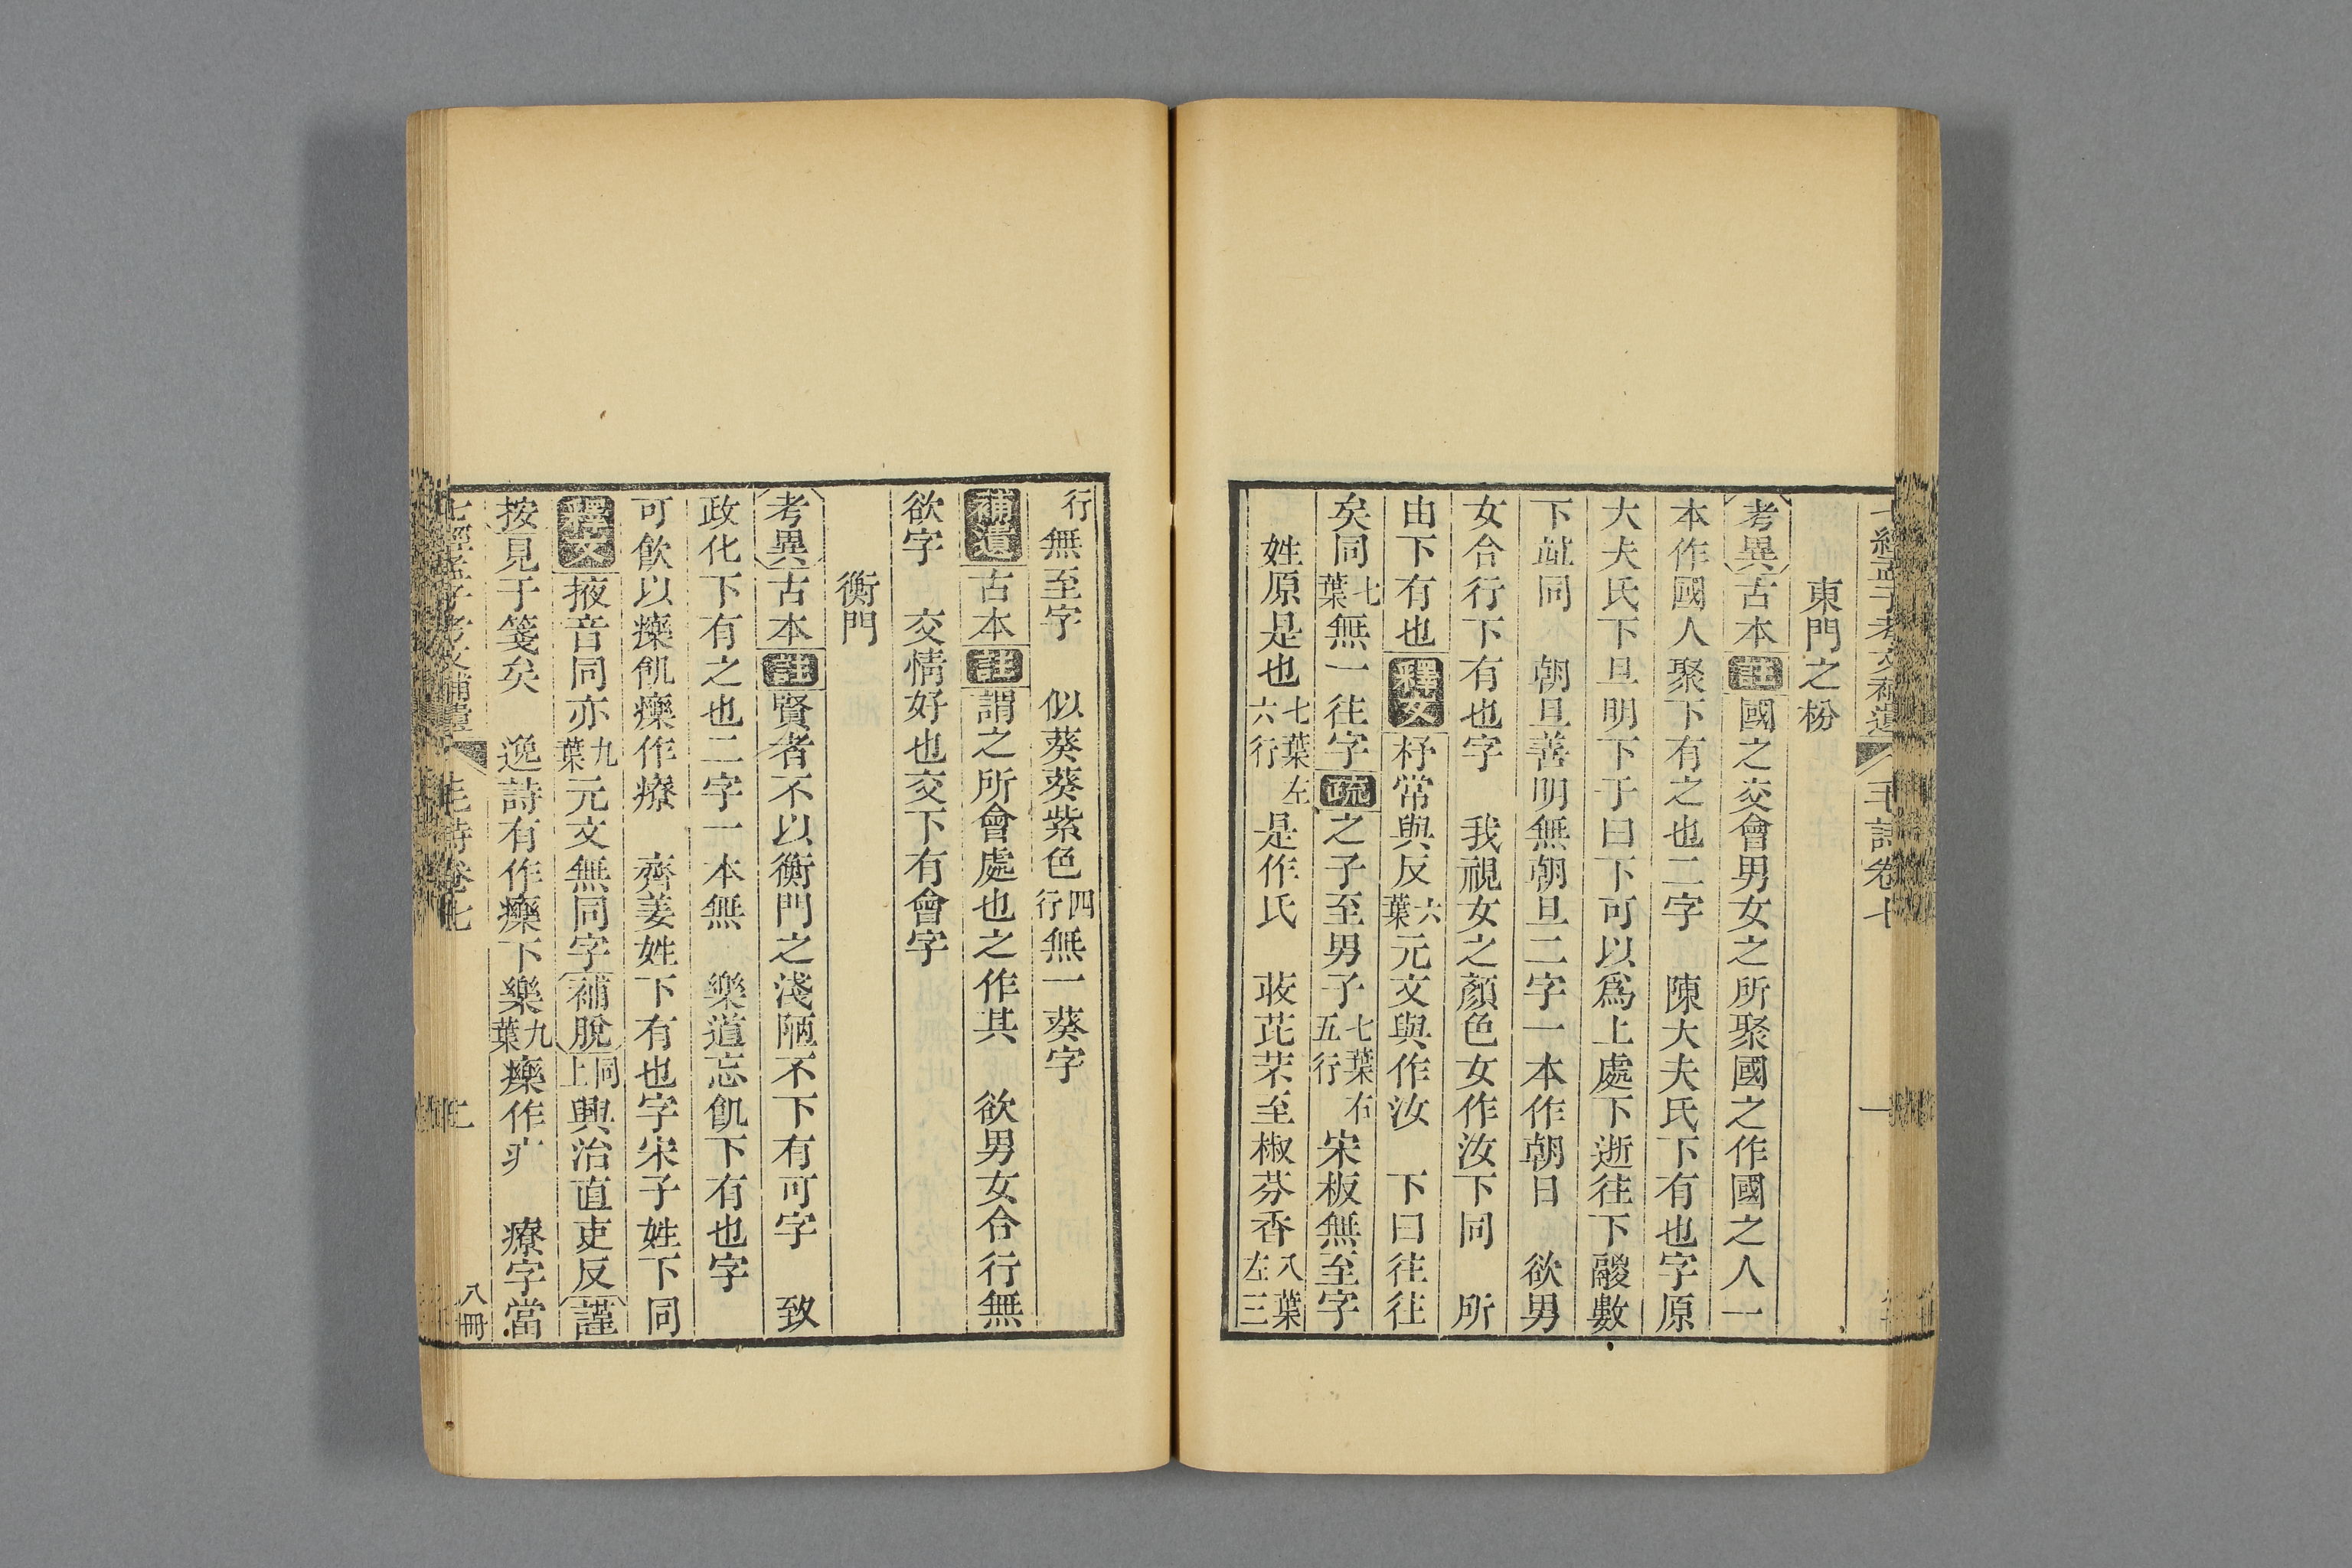 七經孟子考文補遺 毛詩卷七 一
東門之枌
考異古本註國之交會男女之所聚國之作國之人一
本作國人聚下有之也二字 陳大夫氏下有也字原
大夫氏下旦明下于曰下可以爲上處下逝往下鬷數
下竝同 朝旦善明無朝旦二字一本作朝日 欲男
女合行下有也字 我視女之顏色女作汝下同 所
由下有也釋文杼常與反六葉元文與作汝 下曰往往
矣同七葉無一往字疏之子至男子七葉右五行宋板無至字
姓原是也七葉左六行是作氏 荍芘芣至椒芬香八葉左三
行無至字 似葵葵紫色四行無一葵字
補遺古本註謂之所會處也之作其 欲男女合行無
欲字 交情好也交下有會字
衡門
考異古本註賢者不以衡門之淺陋不下有可字 致
政化下有之也二字一本無 樂道忘飢下有也字
可飲以𤻲飢𤻲作療 齊姜姓下有也字宋子姓下同
釋文掖音同亦九葉元文無同字補脫同上興治直吏反謹
按見于箋矣 逸詩有作𤻲下樂九葉𤻲作疒 療字當
七經孟子考文補遺 毛詩卷七 二
八冊